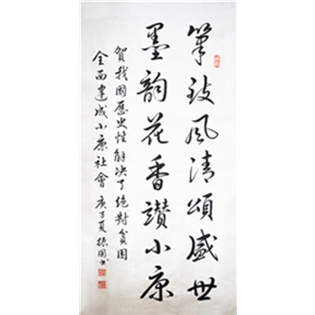 筆致風清頌盛世
墨韵花香讚小康
賀我國歷史性解决了絕對貧困
全面建成小康社會 庚子夏 振國书